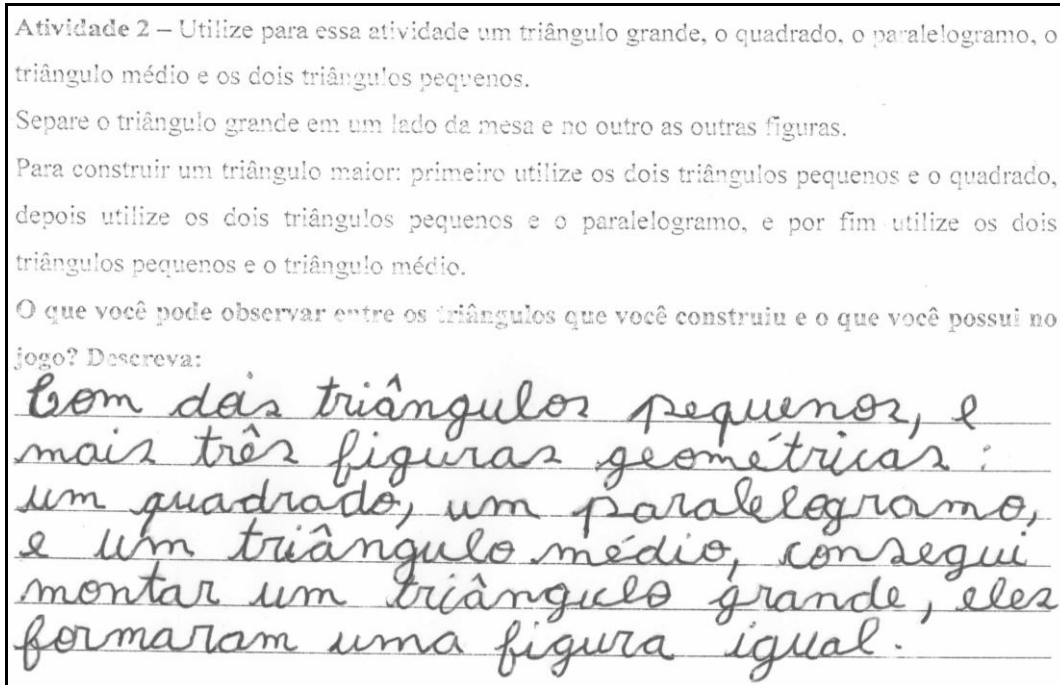 Atividade 2 – Utilize para essa atividade um triângulo grande, o quadrado, o paralelogramo, o
triângulo médio e os dois triângulos pequenos.
Separe o triângulo grande em um lado da mesa e no outro as outras figuras.
Para construir um triângulo maior: primeiro utilize os dois triângulos pequenos e o quadrado,
depois utilize os dois triângulos pequenos e o paralelogramo, e por fim utilize os dois
triângulos pequenos e o triângulo médio.
O que você pode observar entre os triângulos que você construiu e o que você possui no
jogo? Descreva:
Com dois triângulos pequenos, e
mais três figuras geométricas:
um quadrado, um paralelogramo,
e um triângulo médio, consegui
montar um triângulo grande, eles
formaram uma figura igual.